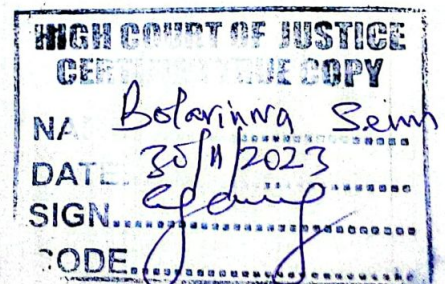 HIGH COURT OF JUSTICE
CERTIFIED TRUE COPY
NA Bolarinwa
DATE 30/11/2023
SIGN
CODE